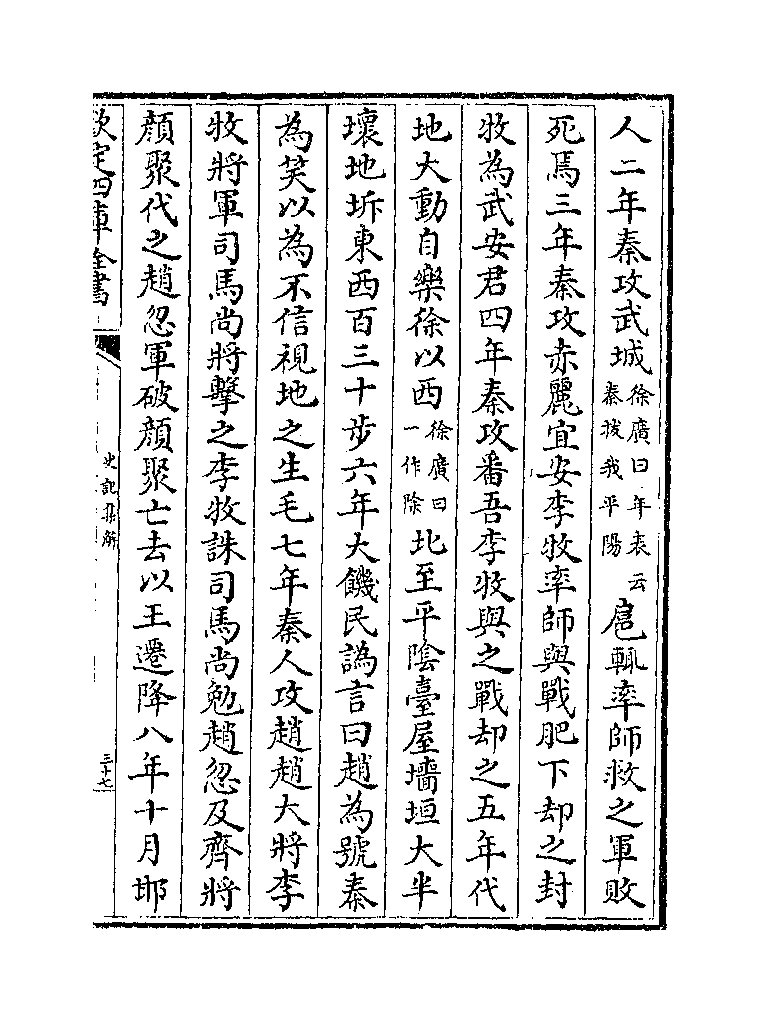 人二年秦攻武城徐廣曰年表云秦拔我平陽扈輒率師救之軍敗
死焉三年秦攻赤麗宜安李牧率師與戰肥下却之封
牧為武安君四年秦攻番吾李牧與之戰却之五年代
地大動自樂徐以西徐廣曰一作除北至平隂臺屋墻垣大半
壞地坼東西百三十步六年大饑民譌言曰趙為號秦
為笑以為不信視地之生毛七年秦人攻趙趙大將李
牧將軍司馬尚將擊之李牧誅司馬尚勉趙忽及齊將
顔聚代之趙忽軍破顔聚亡去以王遷降八年十月邯
欽定四庫全書
史記集解
三十七